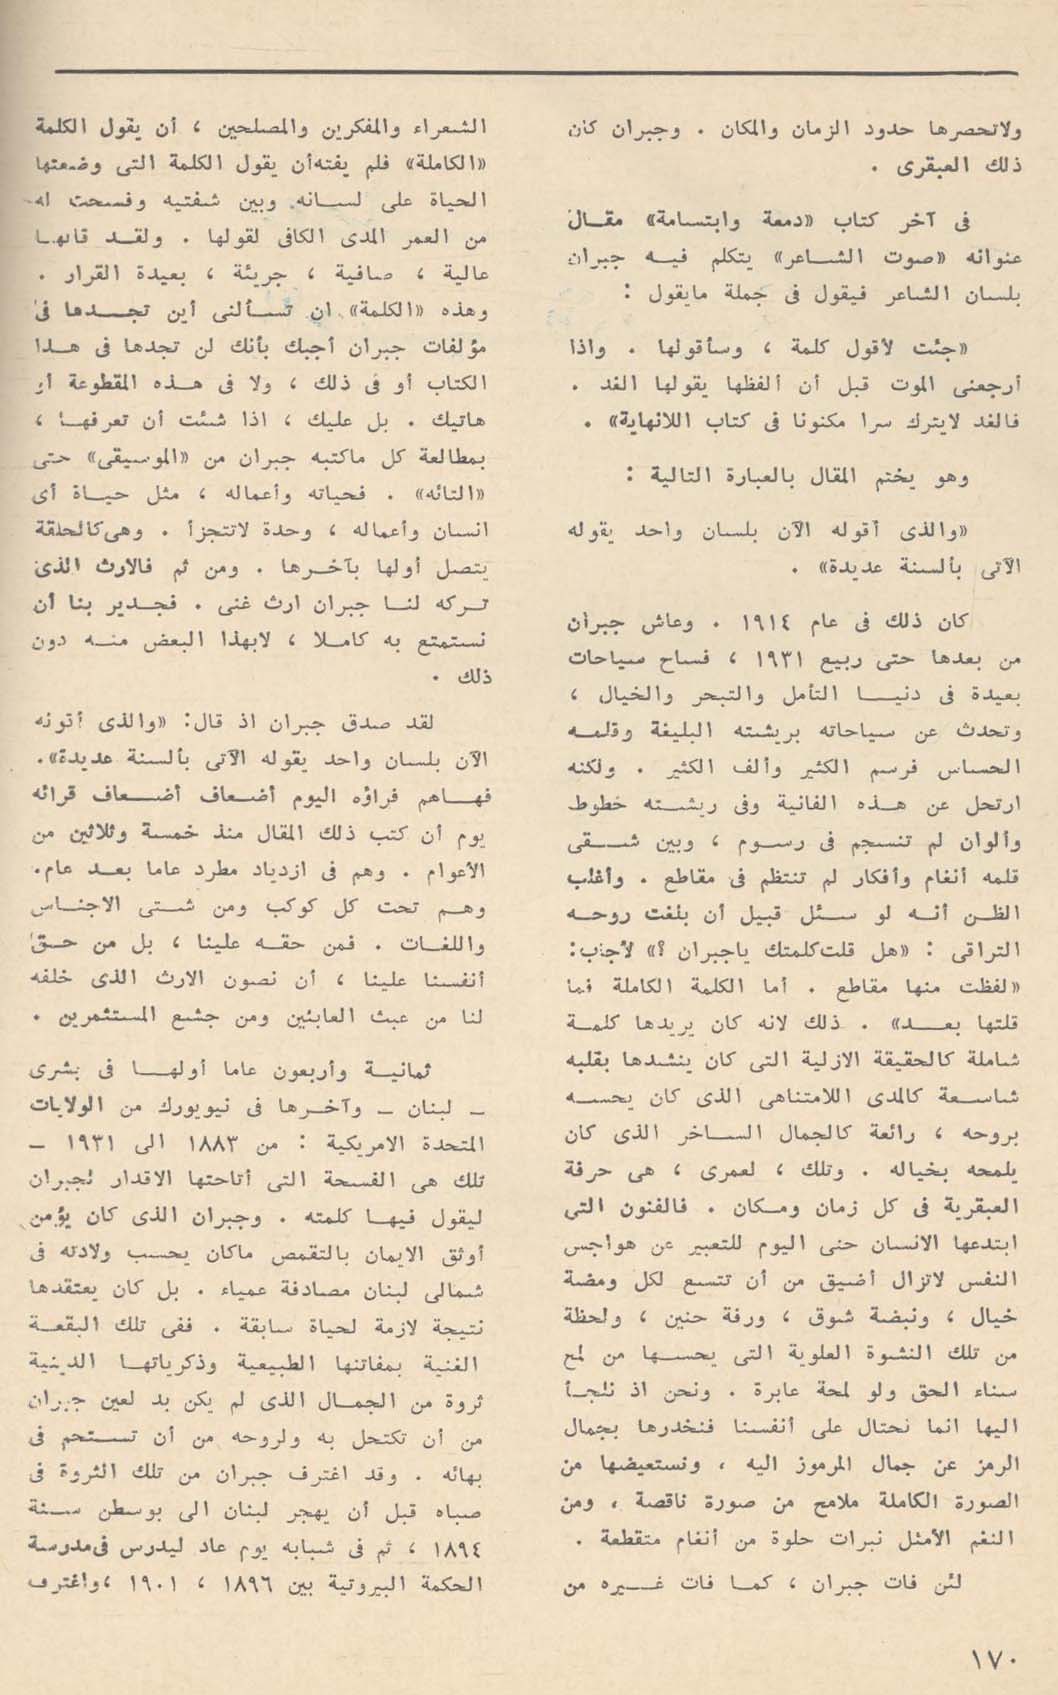 ولاتحصرها حدود الزمان والمكان . وجبران كان
ذلك العبقرى .
فى آخر كتاب «دمعة وابتسامة» مقال
عنوانه «صوت الشاعر» يتكلم فيه جبران
بلسان الشاعر فيقول فى جملة مايقول :
«جئت لأقول كلمة ، وسأقولها . واذا
أرجعنى الموت قبل أن ألفظها يقولها الغد .
فالغد لايترك سرا مكنونا فى كتاب اللانهاية» .
وهو يختم المقال بالعبارة التالية :
«والذى أقوله الآن بلسان واحد يقوله
الآتى بألسنة عديدة» .
كان ذلك فى عام ١٩١٤ . وعاش جبران
من بعدها حتى ربيع ١٩٣١ ، فساح سياحات
بعيدة فى دنيا التأمل والتبحر والخيال ،
وتحدث عن سياحاته بريشته البليغة وقلمه
الحساس فرسم الكثير وألف الكثير . ولكنه
ارتحل عن هذه الفانية وفى ريشته خطوط
وألوان لم تنسجم فى رسوم ، وبين شقى
قلمه أنغام وأفكار لم تنتظم فى مقاطع . وأغلب
الظن أنه لو سئل قبيل أن بلغت روحه
التراقى : «هل قلت كلمتك ياجبران ؟» لأجاب:
«لفظت منها مقاطع . أما الكلمة الكاملة فما
قلتها بعد» . ذلك لانه كان يريدها كلمة
شاملة كالحقيقة الازلية التى كان ينشدها بقلبه
شاسعة كالمدى اللامتناهى الذى كان يحسه
بروحه ، رائعة كالجمال الساخر الذى كان
يلمحه بخياله . وتلك ، لعمرى ، هى حرفة
العبقرية فى كل زمان ومكان . فالفنون التى
ابتدعها الانسان حتى اليوم للتعبير عن هواجس
النفس لاتزال أضيق من أن تتسع لكل ومضة
خيال ، ونبضة شوق ، ورفة حنين ، ولحظة
من تلك النشوة العلوية التى يحسها من لمح
سناء الحق ولو لمحة عابرة . ونحن اذ نلجأ
اليها انما نحتال على أنفسنا فنخدرها بجمال
الرمز عن جمال المرموز اليه ، ونستعيضها من
الصورة الكاملة ملامح من صورة ناقصة ، ومن
النغم الأمثل نبرات حلوة من أنغام متقطعة .
لئن فات جبران ، كما فات غيره من
الشعراء والمفكرين والمصلحين ، أن يقول الكلمة
«الكاملة» فلم يفته أن يقول الكلمة التى وضعتها
الحياة على لسانه وبين شفتيه وفسحت له
من العمر المدى الكافى لقولها . ولقد قالها
عالية ، صافية ، جريئة ، بعيدة القرار .
وهذه «الكلمة» ان تسألنى أين تجدها فى
مؤلفات جبران أجبك بأنك لن تجدها فى هذا
الكتاب أو فى ذلك ، ولا فى هذه المقطوعة أو
هاتيك . بل عليك ، اذا شئت أن تعرفها ،
بمطالعة كل ماكتبه جبران من «الموسيقى» حتى
«التائه» . فحياته وأعماله ، مثل حياة أى
انسان وأعماله ، وحدة لاتتجزأ . وهى كالحلقة
يتصل أولها بآخرها . ومن ثم فالارث الذى
تركه لنا جبران ارث غنى . فجدير بنا أن
نستمتع به كاملا ، لابهذا البعض منه دون
ذلك .
لقد صدق جبران اذ قال: «والذى أقوله
الآن بلسان واحد يقوله الآتى بألسنة عديدة».
فهاهم قراؤه اليوم أضعاف أضعاف قرائه
يوم أن كتب ذلك المقال منذ خمسة وثلاثين من
الأعوام . وهم فى ازدياد مطرد عاما بعد عام.
وهم تحت كل كوكب ومن شتى الاجناس
واللغات . فمن حقه علينا ، بل من حق
أنفسنا علينا ، أن نصون الارث الذى خلفه
لنا من عبث العابثين ومن جشع المستثمرين .
ثمانية وأربعون عاما أولها فى بشرى
ــ لبنان ــ وآخرها فى نيويورك من الولايات
المتحدة الامريكية : من ١٨٨٣ الى ١٩٣١ ــ
تلك هى الفسحة التى أتاحتها الاقدار لجبران
ليقول فيها كلمته . وجبران الذى كان يؤمن
أوثق الايمان بالتقمص ماكان يحسب ولادته فى
شمالى لبنان مصادفة عمياء . بل كان يعتقدها
نتيجة لازمة لحياة سابقة . ففى تلك البقعة
الغنية بمفاتنها الطبيعية وذكرياتها الدينية
ثروة من الجمال الذى لم يكن بد لعين جبران
من أن تكتحل به ولروحه من أن تستحم فى
بهائه . وقد اغترف جبران من تلك الثروة فى
صباه قبل أن يهجر لبنان الى بوسطن سنة
١٨٩٤ ، ثم فى شبابه يوم عاد ليدرس فى مدرسة
الحكمة البيروتية بين ١٨٩٦ ، ١٩٠١ ، واغترف
١٧٠